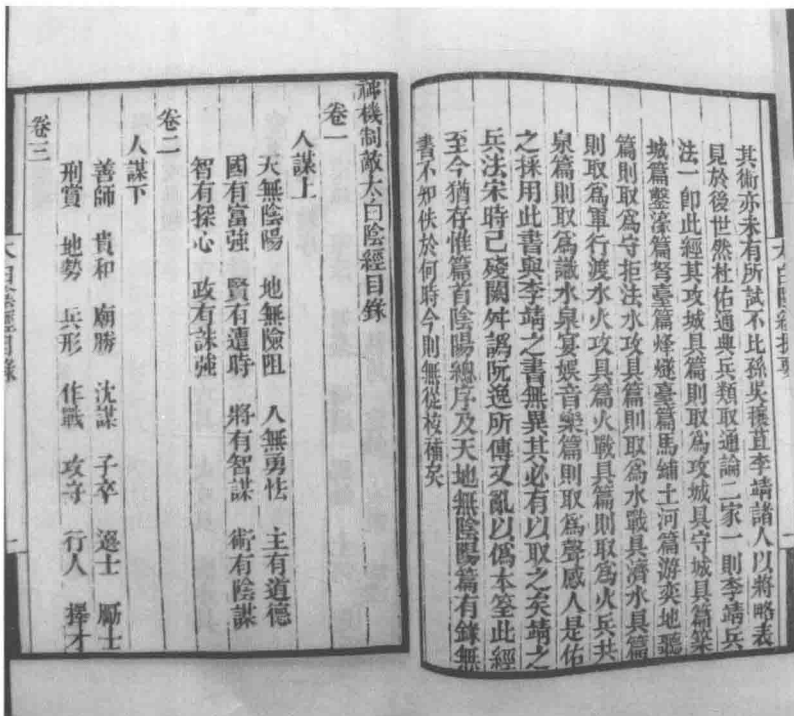 太白陰經提要
其術亦未有所試不比孫吳穰苴李靖諸人以將略表
見於後世然杜佑通典兵類取通論二家一則李靖兵
法一卽此經其攻城具篇則取爲攻城具守城具篇築
城篇鑿濠篇弩臺篇烽燧臺篇馬鋪土河篇游奕地聽
篇則取爲守拒法水攻具篇則取爲水戰具濟水具篇
則取爲軍行渡水火攻具篇火戰具篇則取爲火兵共
泉篇則取爲識水泉宴娛音樂篇則取爲聲感人是佑
之採用此書與李靖之書無異其必有以取之矣靖之
兵法宋時已殘闕舛譌阮逸所傳又亂以僞本筌此經
至今猶存惟篇首陰陽總序及天地無陰陽篇有錄無
書不知佚於何時今則無從核補矣
神機制敵太白陰經目錄
卷一
人謀上
天無陰陽 地無險阻 人無勇怯 主有道德
國有富強 賢有遭時 將有智謀 術有陰謀
智有探心 政有誅強
卷二
人謀下
善師 貴和 廟勝 沈謀 子卒 選士 勵士
刑賞 地勢 兵形 作戰 攻守 行人 擇才
卷三
太白陰經目錄 一